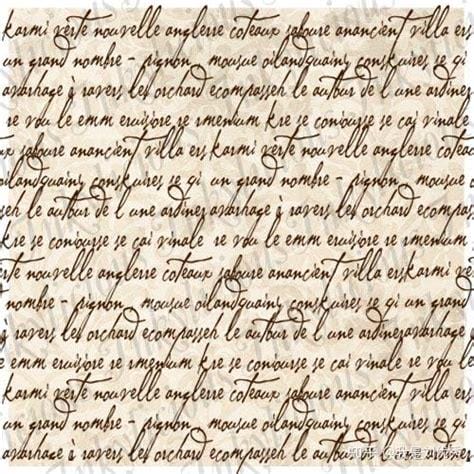 karmi verte nouvelle anglerre coteaux saboure anancient villa ers
un grand nombre - pignon, mousue oilandquainy conskuires se qi
avarhage à ravers les orchard ecompasseh le autour de l une
rou le emm eruisiore se rmenium kre se coniourse se cai vinale,
saboure anancient villa erskarmi verte nouvelle anglerre coteaux
oilandquainy conskuires se qi un grand nombre - pignon, mousue
le autour de l une ardinesavarhage à ravers les orchard ecompasseh
kre se coniourse se cai vinale, rou le emm eruisiore se rmenium
nouvelle anglerre coteaux saboure anancient villa erskarmi ver
nombre - pignon, mousue oilandquainy conskuires se qi un grand
ravers les orchard ecompasseh le autour de l une ardinesavarhage
emm eruisiore se rmenium kre se coniourse se cai vinale, rou le
karmi verte nouvelle anglerre coteaux saboure anancient villa ers
un grand nombre - pignon, mousue oilandquainy conskuires se qi
avarhage à ravers les orchard ecompasseh le autour de l une
知乎